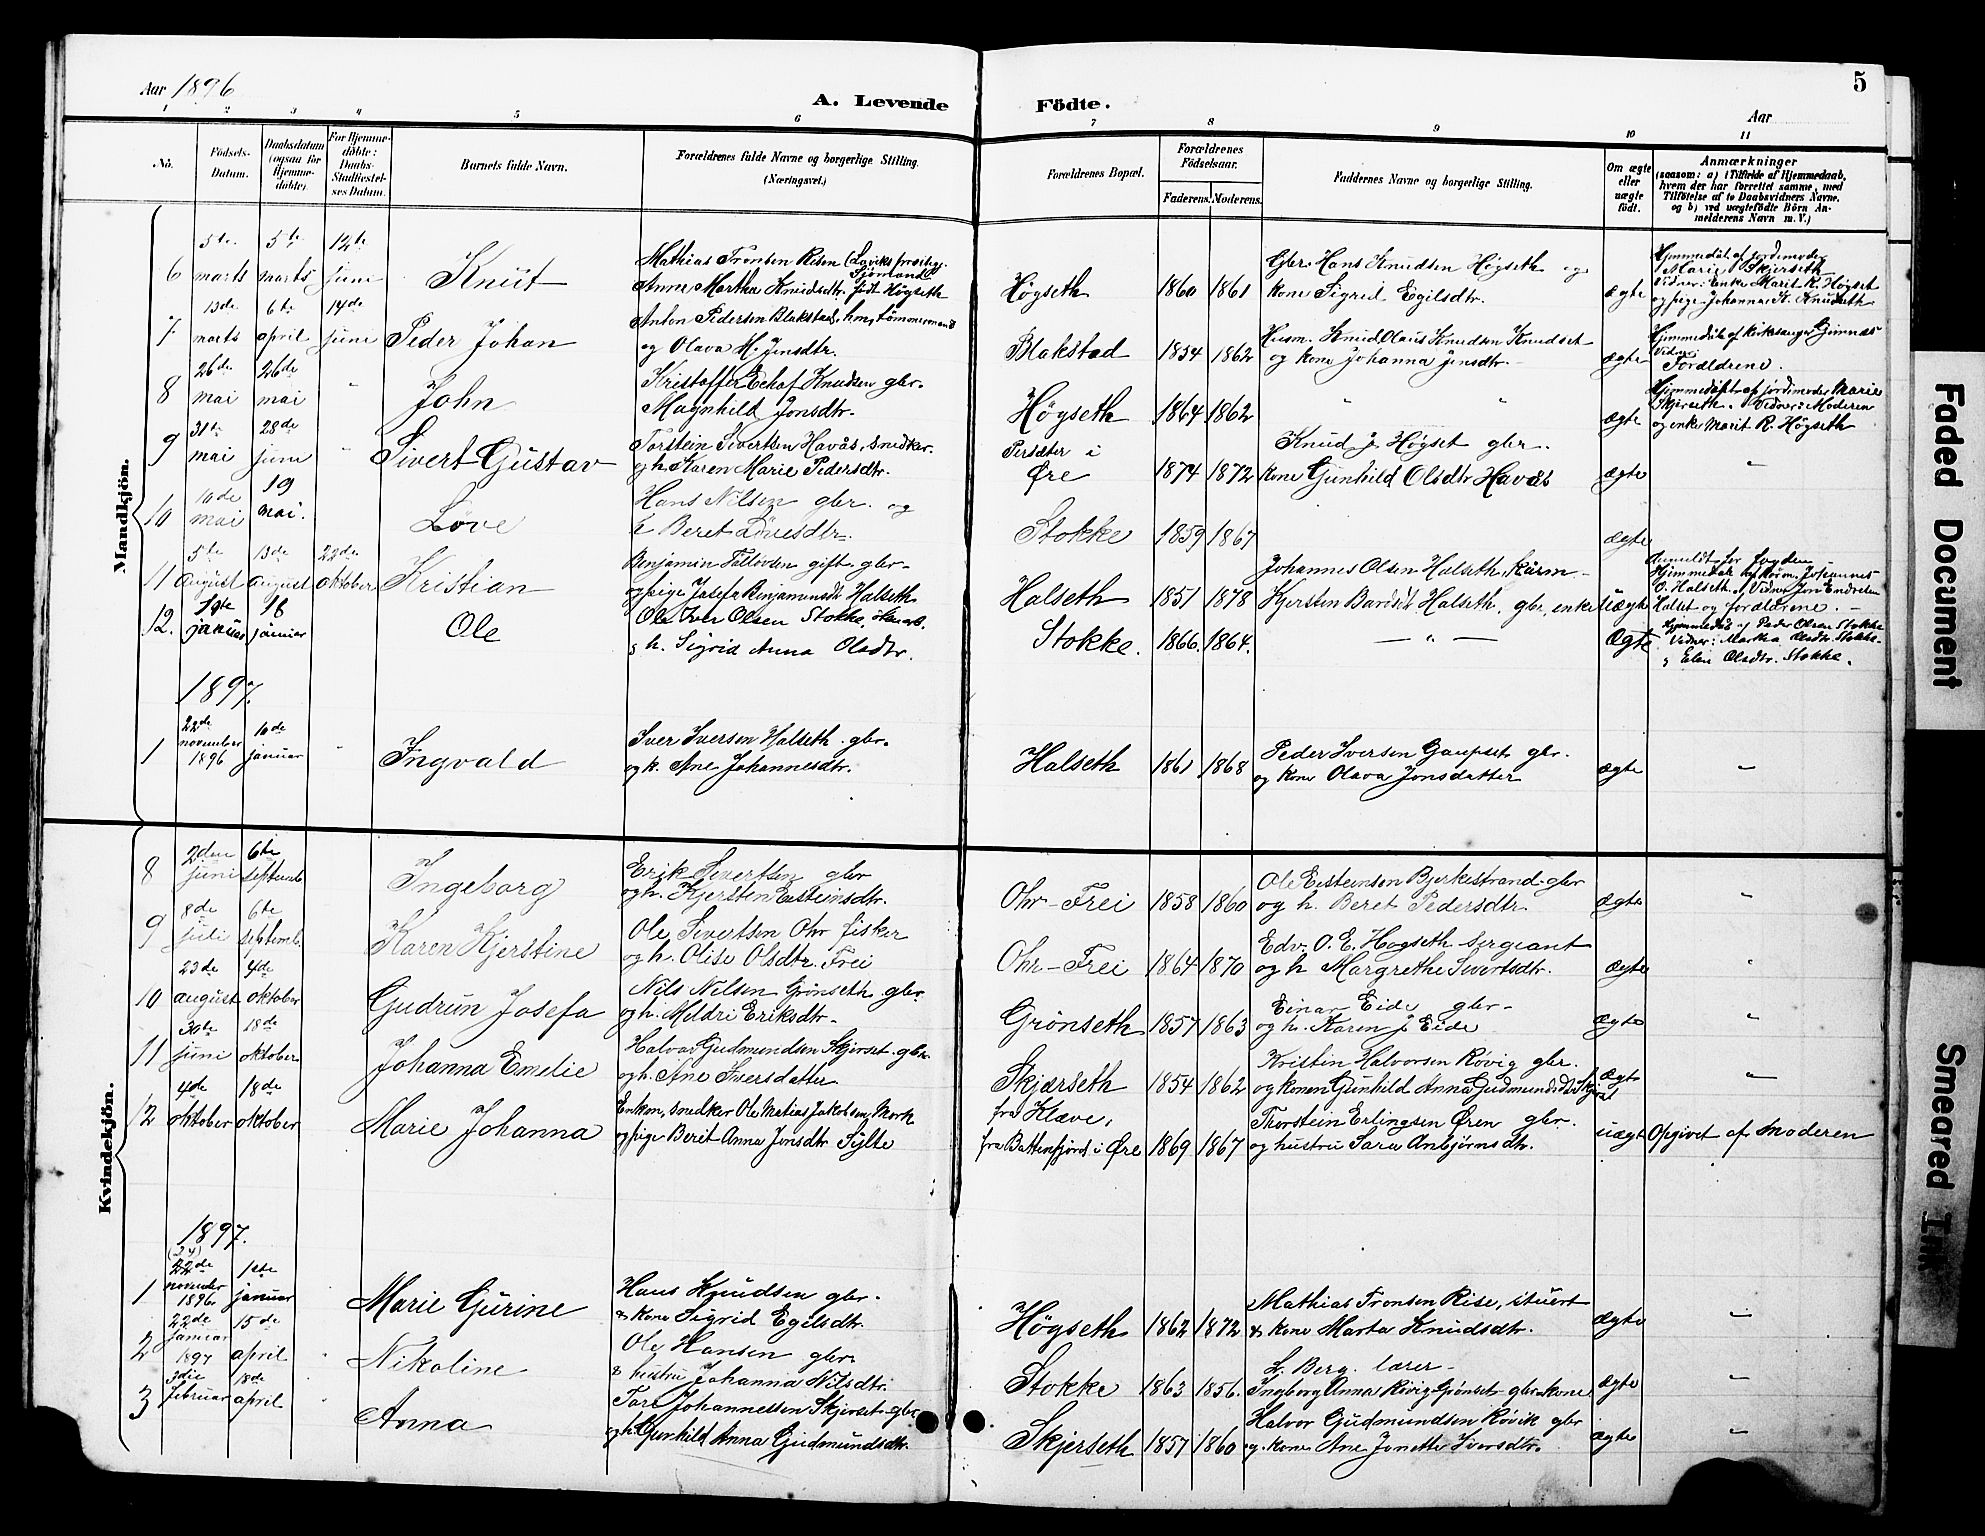 Aar 1896
A. Levende Födte.
5
Aar
1 2 3 4 5 6 7 8 9 10 11
No.
Födsels-Datum.
Daabsdatum (ogsaa for Hjemmedøbte).
For Hjemmedöbte: Daabs-Stadfæstelses Datum.
Barnets fulde Navn.
Forældrenes fulde Navne og borgerlige Stilling.
(Næringsvei.)
Forældrenes Bopæl.
Forældrenes Födselsaar.
Faderens. Moderens.
Faddernes Navne og borgerlige Stilling.
Om ægte eller uægte født.
Anmærkninger
(saasom: a) i Tilfælde af Hjemmedaab,
hvem der har forrettet samme, med
Tilföielse af to Daabsvidners Navne,
og b) ved uægtefödte Börn An-
melderens Navn m. V.)
Mandkjön.
6 5te marts 5te marts 12te juni Knut
Mathias Tronsen Risen (Laviks præstegj. Sjömand)
Anne Martha Knudsdtr. födt Högseth
Högseth 1860 1861
Gbr. Hans Knudsen Högseth og
kone Sigrid Egilsdtr.
ægte
Hjemmedöbt af jordmoder
Marie Skjerseth
Vidner: Enke Marit R. Högset
og pige Johanna K. Knudseth
7 13de marts 6te april 14de juni Peder Johan
Anton Pedersen Blakstad, hm, tömmermand
og Olava M. Jensdtr.
Blakstad 1854 1862
Husm. Knud Olaus Knudsen Knudset
og kone Johanna Jensdtr.
ægte
Hjemmedöbt af kirksanger Gimnæs
Vidner
Forældrene.
8 26de mai 26de mai " John
Kristoffer Knudsen gbr.
Magnhild Jonsdtr.
Högseth 1864 1862 " " ægte
Hjemmedöbt af jordmoder Marie
Skjerseth. Vidner: Moderen
og enke Marit R. Högseth
9 31te mai 28de juni " Sivert Gustav
Torstein Sivertsen Havås, snedker
og h. Karen Marie Pedersdtr.
Persæter i
Øre 1874 1872
Knud J. Högset gbr.
kone Gunhild Olsdtr Havås
ægte "
10 10de mai 19 mai. Løve
Hans Nilsen gbr. og
h Beret Lövesdtr.
Stokke 1859 1867 ægte
11 5te august 13de august 22de oktober Kristian
Benjamin gift gbr.
og pige Josefa Benjaminsdt Halseth
Halseth 1851 1878
Johannes Olsen Halseth, kårm
Kjersten Bardsdt Halseth, gbr. enke
uægte
Anmeldt for Fogden
Hjemmedöbt Johannes
O. Halseth. Vidner Jon Endresen
Halset og forældrene.
12. 1ste januar 18 januar Ole
Ole Iver Olsen Stokke,
g h. Sigrid Anna Olsdtr.
Stokke. 1866. 1864. — " — Ægte
Hjemmedöbt af Peder Olsen Stokke
Vidner: Martha Olsdtr. Stokke
g Elen Olsdtr. Stokke.
1897.
1 22de november 1896 10de januar " Ingvald
Iver Iversen Halseth gbr.
og k. Ane Johannesdtr.
Halseth 1861 1868
Peder Iversen Gaupset gbr.
og kone Olava Jonsdatter
ægte "
Kvindekjön.
8 2den juni 6te septemb Ingeborg
Erik Sivertsen gbr
og h. Kjersten Eisteinsdtr.
Ohr-Frei 1858 1860
Ole Eisteinsen Bjerkestrand gbr
og h. Beret Pedersdtr.
ægte "
9 8de juli 6te septemb. Karen Kjerstine
Ole Sivertsen Ohr fisker
og h. Olise Olsdtr. Frei
Ohr-Frei 1864 1870
Edv. O. E. Hogseth sergeant
og h Margrethe Sivertsdtr.
ægte "
10 23de august 4de oktober Gudrun Josefa
Nils Nilsen Grönseth gbr.
og h. Meldri Eriksdtr.
Grönseth 1857 1863
Einar Eide gbr.
og h. Karen J. Eide
ægte "
11 30te juni 18de oktober Johanna Emelie
Halvor Gudmundsen Skjerset gbr.
og h. Ane Iversdatter
Skjærseth 1854 1862
Kristin Halvorsen Røvig gbr.
og konen Gunhild Anna Gudmundsdt Skjerset
ægt "
12 4de oktober 18de oktober Marie Johanna
Enkem, snedker Ole Matias Jakobsen, Mork
og pige Berit Anna Jonsdtr Sylte
fra Klæve,
fra Battenfjord i Øre 1869 1867
Thorstein Erlingsen Øren gbr.
og hustru Sara Anbjørnsdtr.
uægt Opgivet af Moderen
1897.
1 (24) 22de november 1896 1ste januar Marie Gurine
Hans Knudsen gbr.
& kone Sigrid Egilsdtr.
Högseth 1862 1872
Mathias Tronsen Rise, stuert
& kone Marta Knudsdtr.
ægte "
2 22de januar 1897 15de april " Nikoline
Ole Hansen gbr.
& hustru Johanna Nilsdtr.
Stokke 1863 1856.
L. Berg. lærer
Ingeborg Anna Røvig Grönset gbr. kone
ægte "
3 3die februar 18de april " Anna
Tore Johannessen Skjerset gbr
og h Gunhild Anna Gudmundsdtr.
Skjerseth 1857 1860
Halvor Gudmundsen Røvik gbr
g. kone Ane Jonette Iversdtr.
ægte "
Faded Document
Smeared Ink